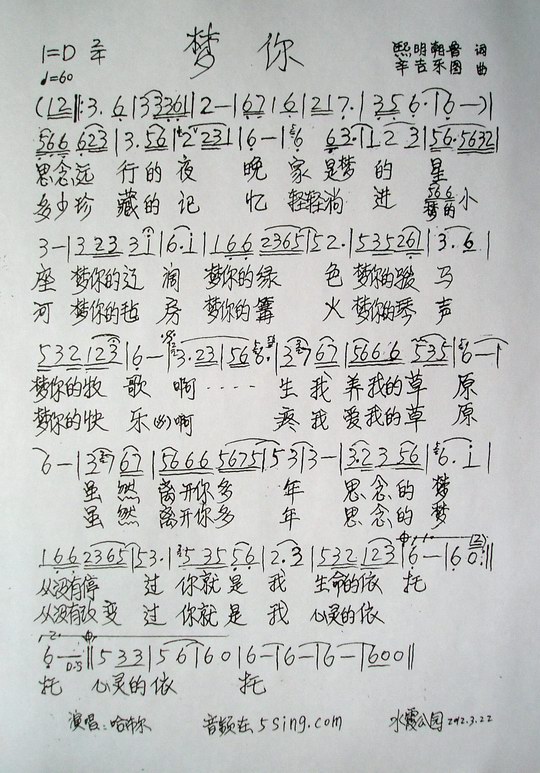 1=D 2/4 梦 你 熙明朝鲁 词
♩=60 辛吉乐图 曲
(12‖:3. 6|33361|2-|67|6|217.|356.|6-)|
566 623|3.56|2 231|6-|6 63.1|1 2 3|56.5632|
思念远 行的夜 晚 家是梦的 星
多少珍 藏的记 忆 轻轻淌 进 梦的小
3-|323 3i|6.i|166 2365|52.|535261|3.6|
座 梦你的辽 阔 梦你的绿 色 梦你的骏 马
河 梦你的毡 房 梦你的篝 火 梦你的琴 声
532 123|6-|3.23|56 6.|3 7 67|5666 535|6-|
梦你的牧 歌 啊 ····· 生 我 养我的草 原
梦你的快 乐 啊 疼 我 爱我的草 原
6-|3 7 67|5666 5675|53|3-|3.2 3 56|6.i|
虽 然 离开你多 年 思 念的 梦
虽 然 离开你多 年 思 念的 梦
166 2365|53.|5 35 56|2.3|532 123|6-|60:‖
从没有停 过 你就是 我 生命的依 托
从没有改变 过 你就是 我 心灵的依
6-‖533|56|60|6-|6-|6-|600‖
托 心灵的依 托
演唱:哈布尔 音频在5sing.com 水霞公园 2012.3.22